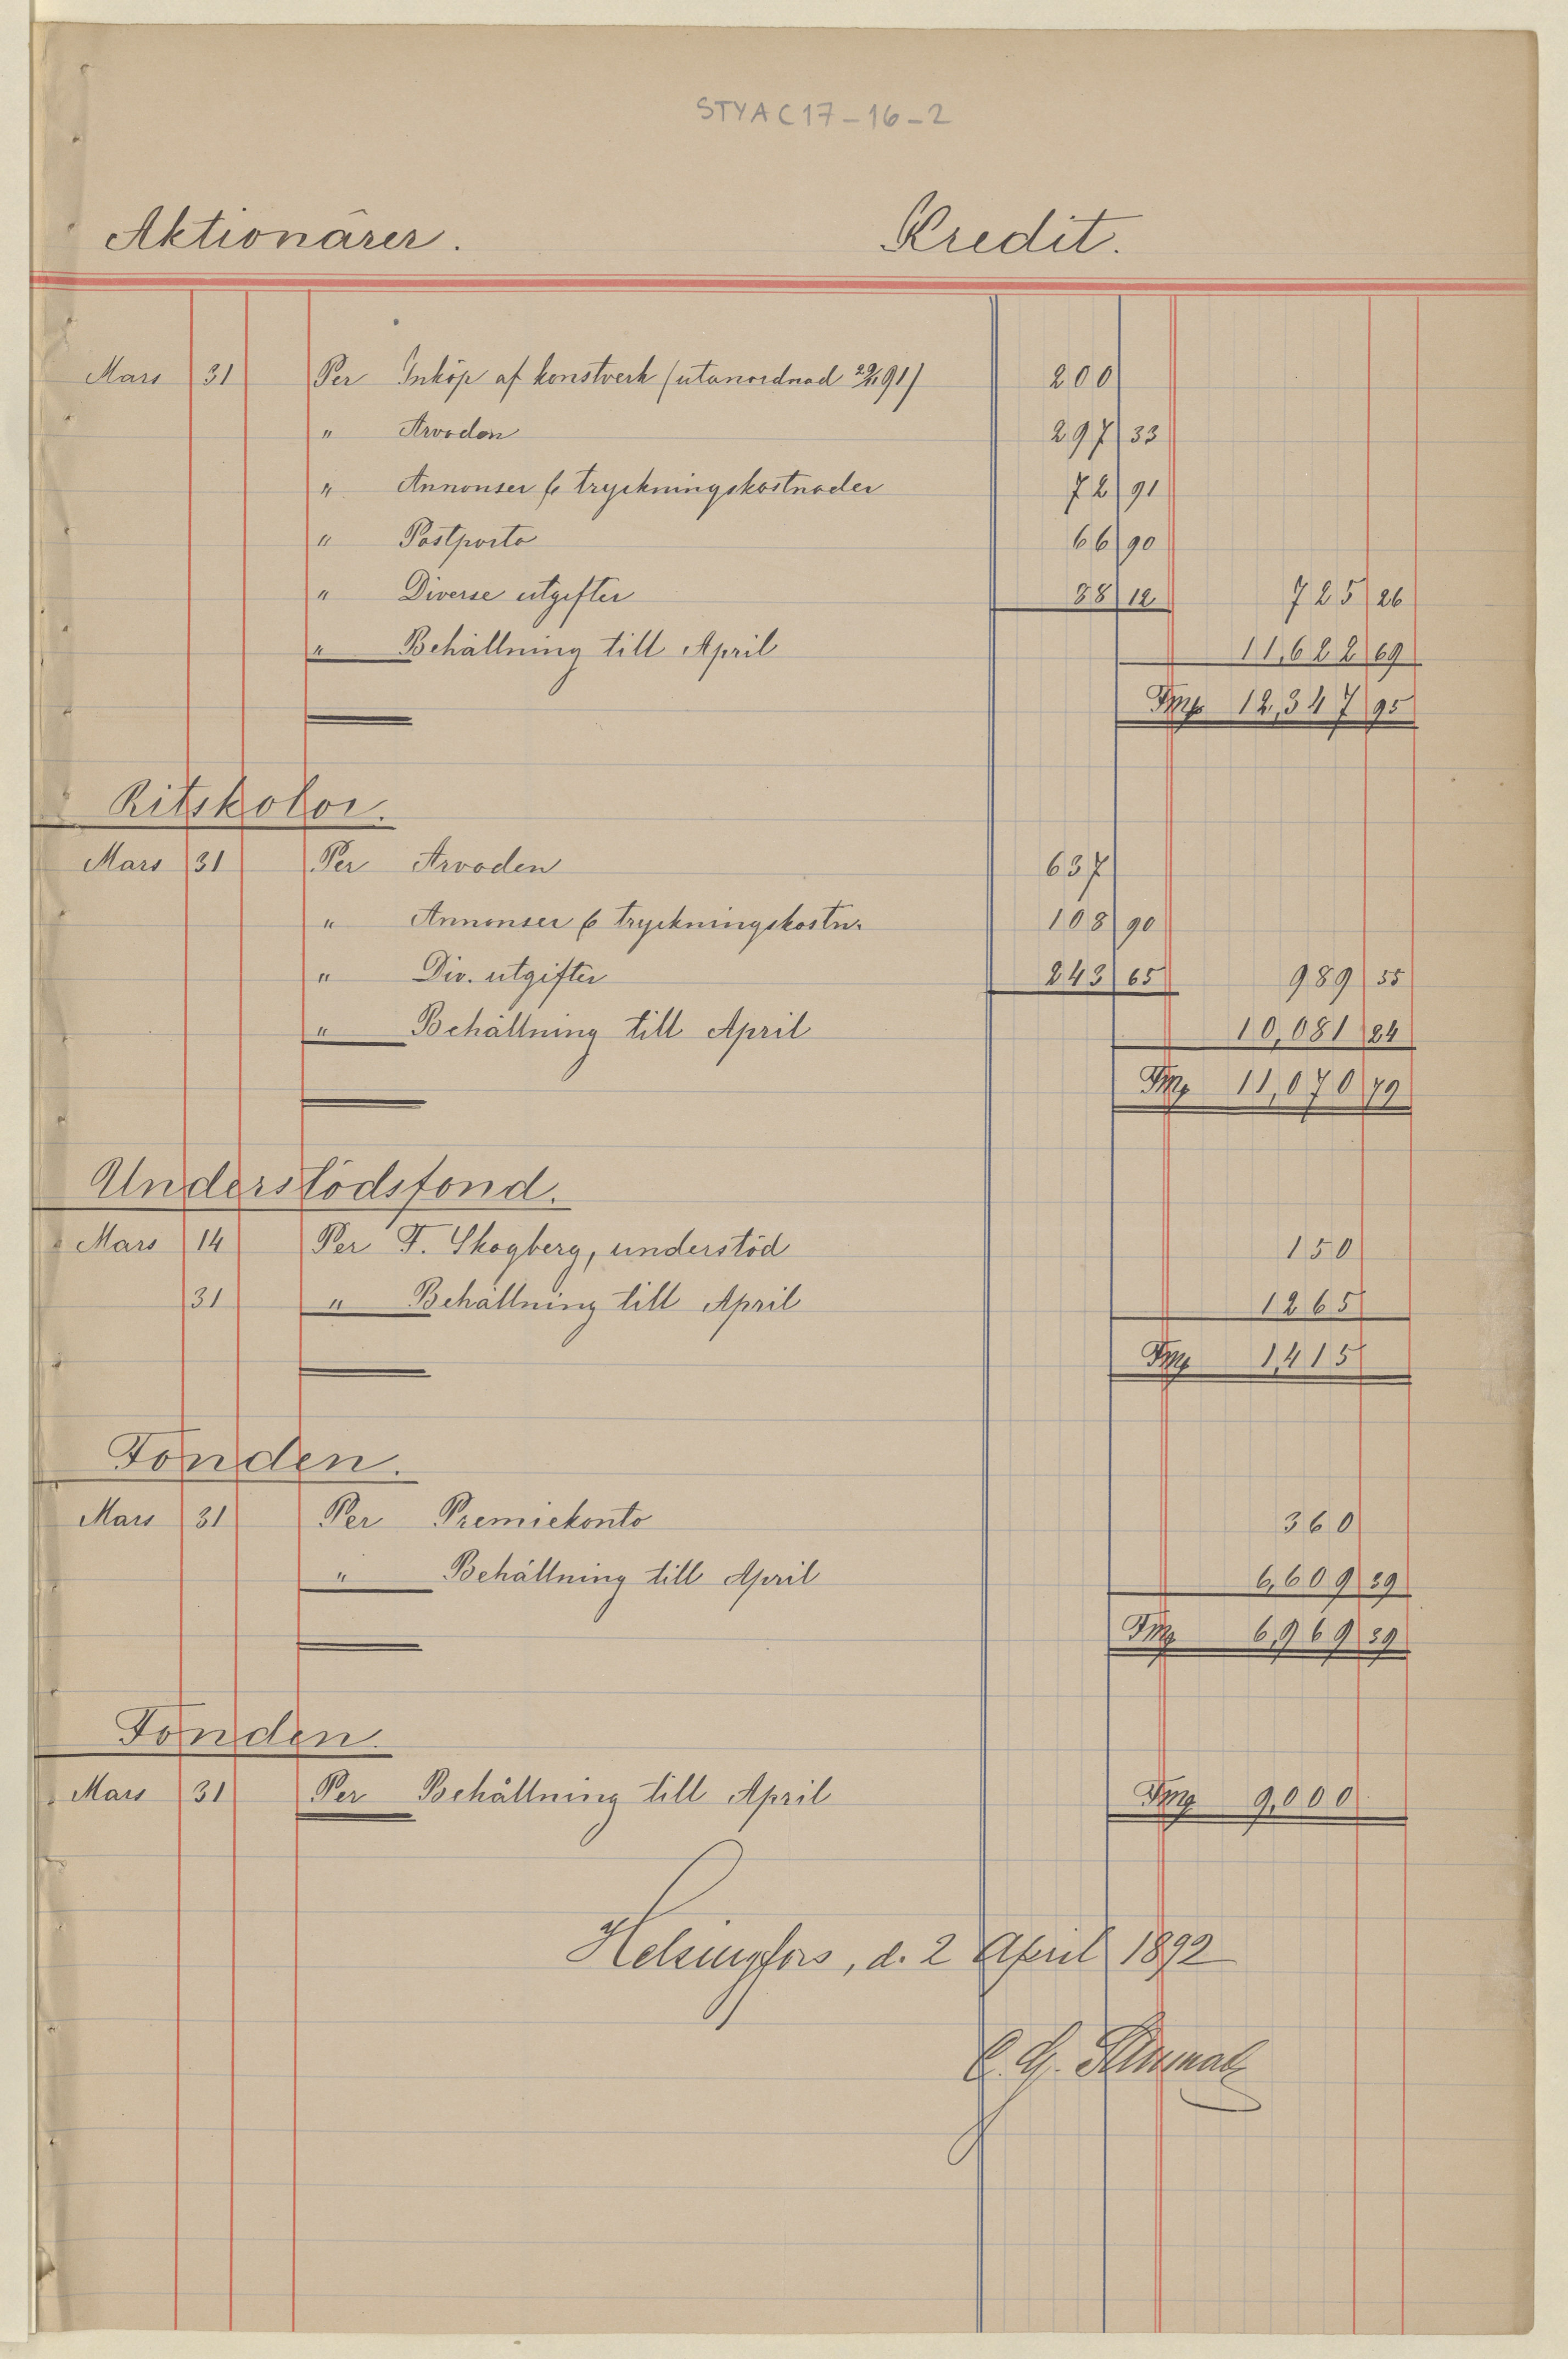 STYA C17-16-2
Aktionärer. Kredit.
Mars 31 Per Inköp af konstverk (utanordnad 91) 200
" Arvoden 297 33
" Annonser & tryckningskostnader 72 91
" Postporto 66 90
" Diverse utgifter 88 12 725 26
" Behållning till April 11,622 69
Fmk 12,347 95
Ritskolor.
Mars 31 Per Arvoden 637
" Annonser & tryckningskostn. 108 90
" Div. utgifter 243 65 989 55
" Behållning till April 10,081 24
Fmk 11,070 79
Understödsfond.
Mars 14 Per F. Skogberg, understöd 150
31 " Behållning till April 1265
Fmk 1,415
Fonden.
Mars 31 Per Premiekonto 360
" Behållning till April 6,609 39
Fmk 6,969 39
Fonden.
Mars 31 Per Behållning till April Fmk 9,000
Helsingfors, d. 2 April 1892